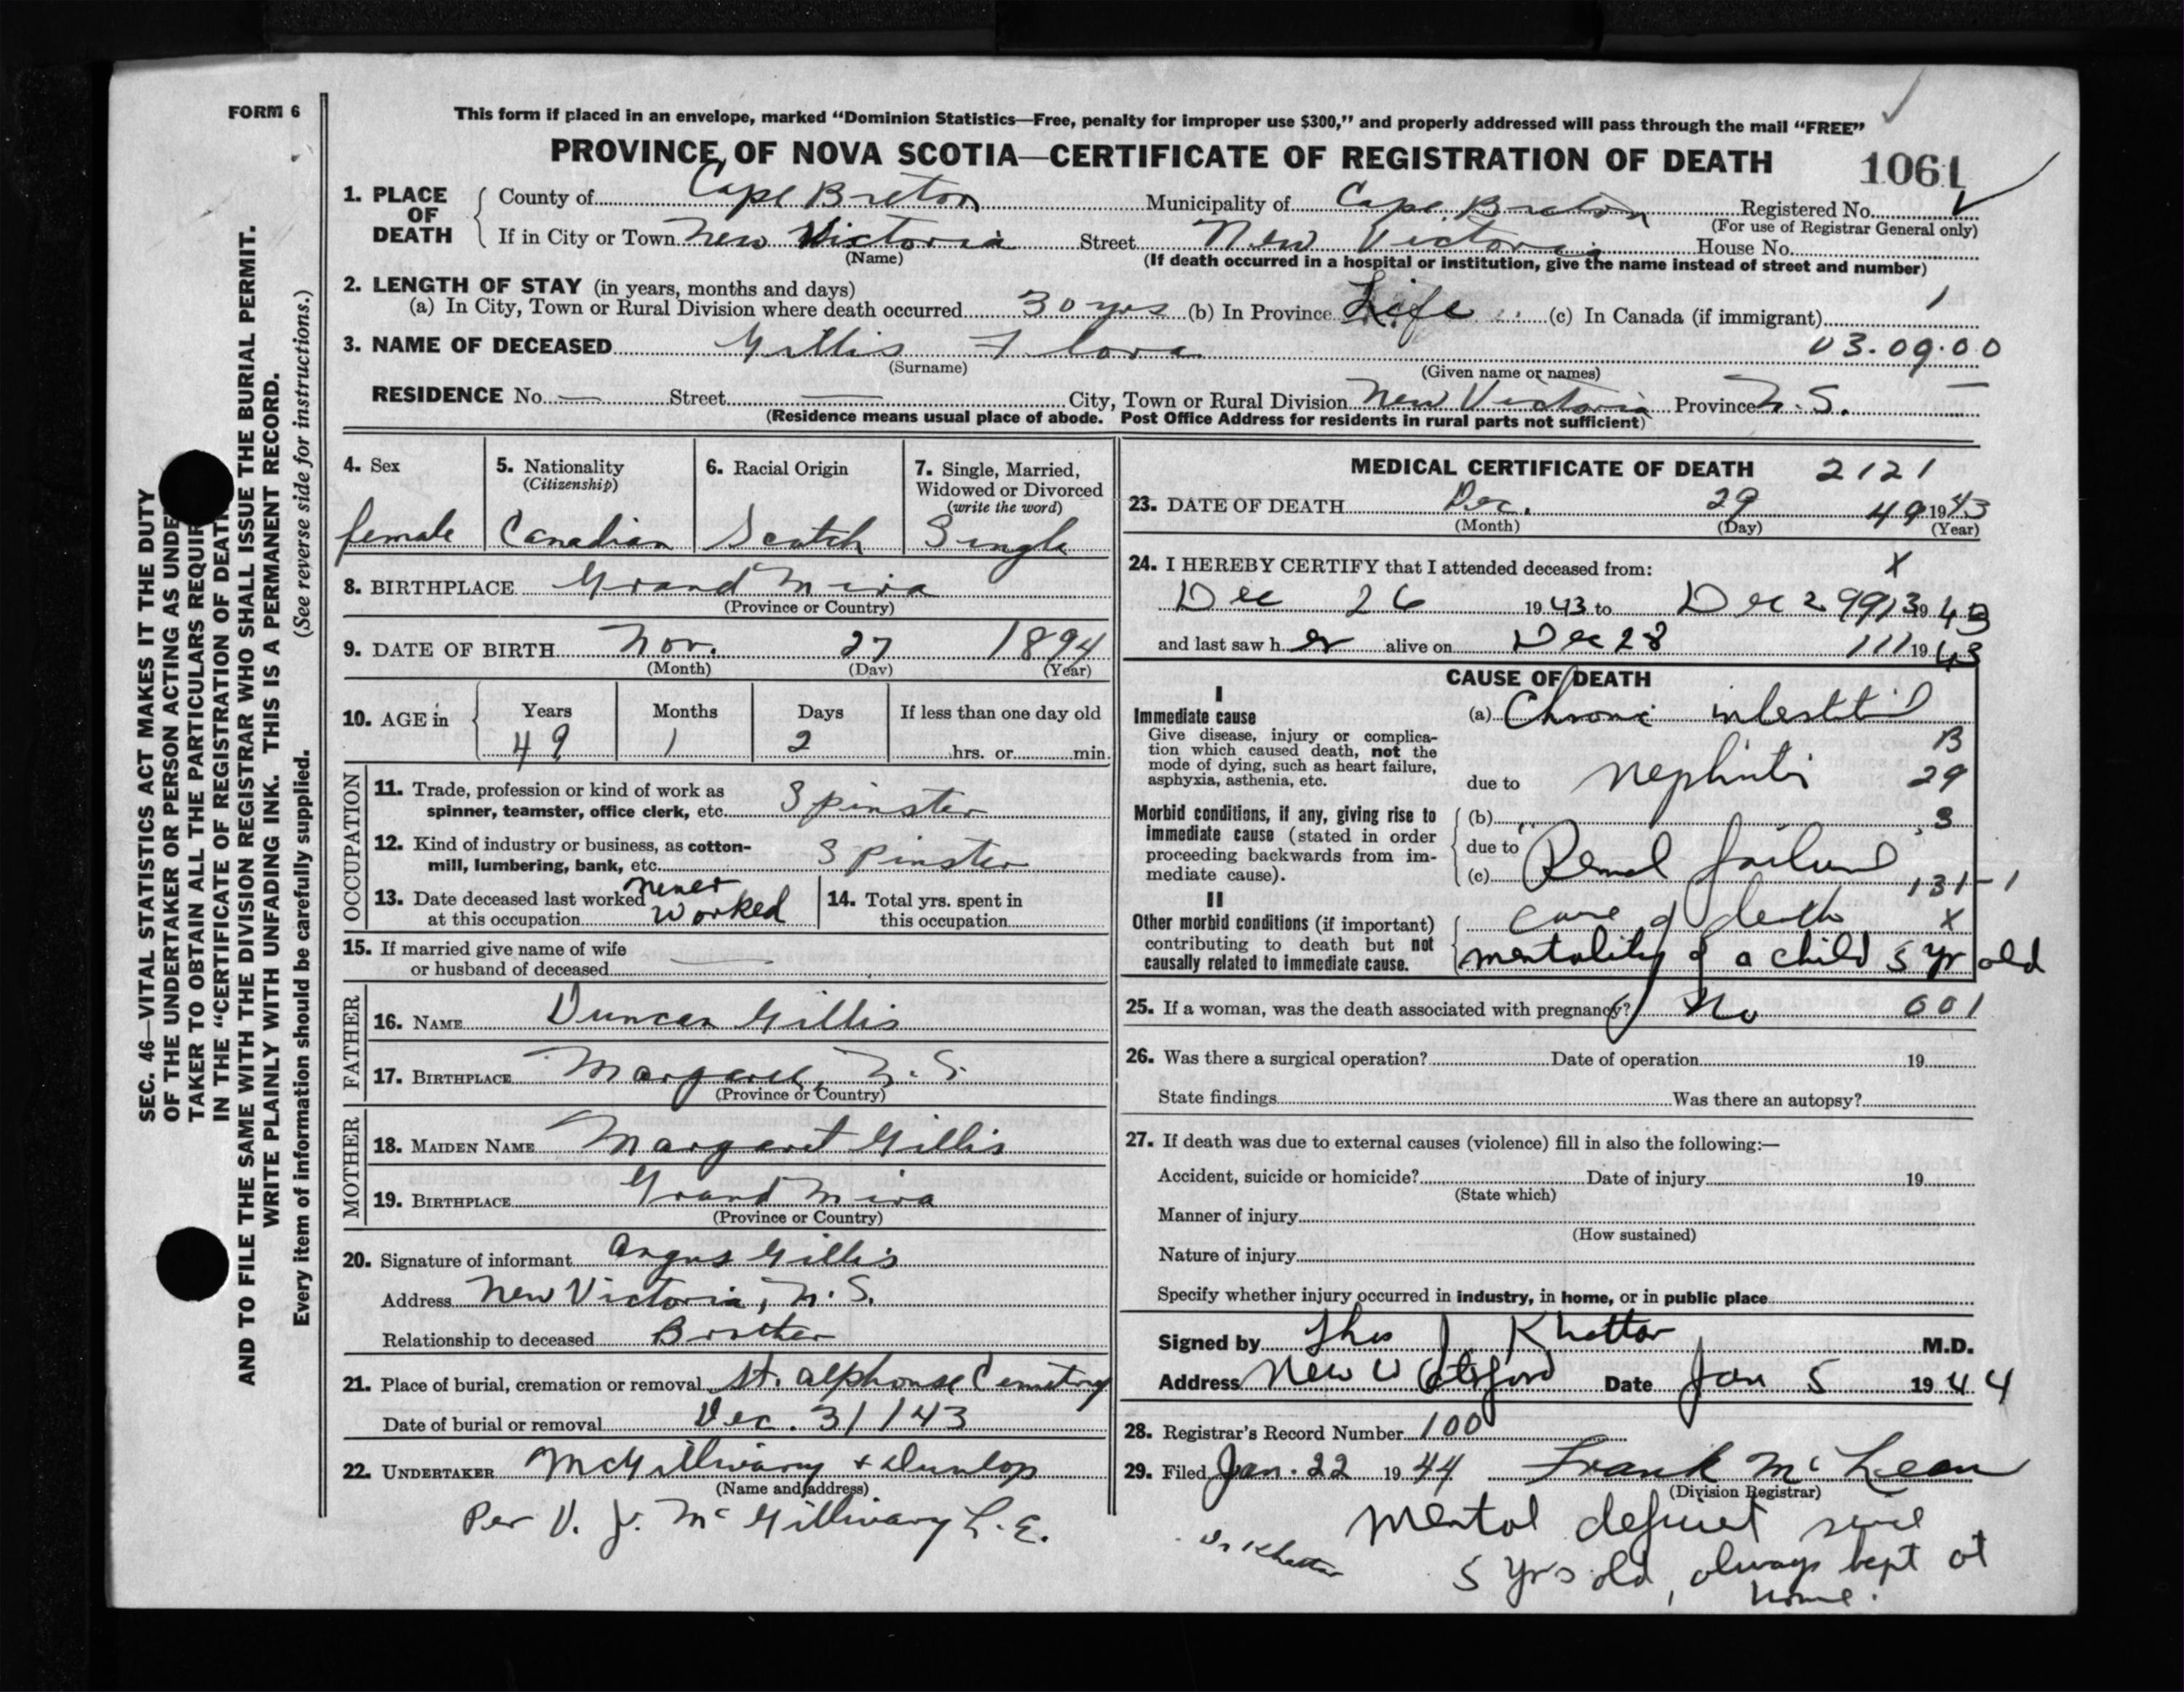 FORM 6
This form if placed in an envelope, marked "Dominion Statistics—Free, penalty for improper use $300," and properly addressed will pass through the mail "FREE"
PROVINCE OF NOVA SCOTIA—CERTIFICATE OF REGISTRATION OF DEATH 1061
1. PLACE OF DEATH
County of Cape Breton Municipality of Cape Breton Registered No.
(For use of Registrar General only)
If in City or Town New Victoria Street New Victoria House No.
(Name) (If death occurred in a hospital or institution, give the name instead of street and number)
2. LENGTH OF STAY (in years, months and days)
(a) In City, Town or Rural Division where death occurred 30 yrs (b) In Province Life (c) In Canada (if immigrant) 1
3. NAME OF DECEASED Gillis Flora 03.09.00
(Surname) (Given name or names)
RESIDENCE No. — Street — City, Town or Rural Division New Victoria Province N.S. —
(Residence means usual place of abode. Post Office Address for residents in rural parts not sufficient)
4. Sex
female
5. Nationality
(Citizenship)
Canadian
6. Racial Origin
Scotch
7. Single, Married,
Widowed or Divorced
(write the word)
Single
8. BIRTHPLACE Grand Mira
(Province or Country)
9. DATE OF BIRTH Nov. 27 1894
(Month) (Day) (Year)
10. AGE in Years Months Days If less than one day old
49 1 2 hrs. or min.
OCCUPATION
11. Trade, profession or kind of work as
spinner, teamster, office clerk, etc. Spinster
12. Kind of industry or business, as cotton-
mill, lumbering, bank, etc. Spinster
13. Date deceased last worked never
at this occupation worked
14. Total yrs. spent in
this occupation
15. If married give name of wife
or husband of deceased —
FATHER
16. NAME Duncan Gillis
17. BIRTHPLACE Margaree, N.S.
(Province or Country)
MOTHER
18. MAIDEN NAME Margaret Gillis
19. BIRTHPLACE Grand Mira
(Province or Country)
20. Signature of informant Angus Gillis
Address New Victoria, N.S.
Relationship to deceased Brother
21. Place of burial, cremation or removal St. Alphonse Cemetry
Date of burial or removal Dec. 31/43
22. UNDERTAKER McGillivary & Dunlop
(Name and address)
Per V. J. McGillivary L.E.
MEDICAL CERTIFICATE OF DEATH 2121
23. DATE OF DEATH Dec. 29 49 1943
(Month) (Day) (Year)
24. I HEREBY CERTIFY that I attended deceased from: X
Dec 26 1943 to Dec 29 913 1943
and last saw her alive on Dec 28 111 1943
CAUSE OF DEATH
I
Immediate cause
Give disease, injury or complica-
tion which caused death, not the
mode of dying, such as heart failure,
asphyxia, asthenia, etc.
(a) Chronic interstitial
B
due to nephritis 29
Morbid conditions, if any, giving rise to
immediate cause (stated in order
proceeding backwards from im-
mediate cause).
(b) 3
due to
(c) Renal failure 131-1
II
Other morbid conditions (if important)
contributing to death but not
causally related to immediate cause.
cause of death X
mentality of a child 5 yr old
25. If a woman, was the death associated with pregnancy? No 001
26. Was there a surgical operation? Date of operation 19
State findings Was there an autopsy?
27. If death was due to external causes (violence) fill in also the following:—
Accident, suicide or homicide? Date of injury 19
(State which)
Manner of injury
(How sustained)
Nature of injury
Specify whether injury occurred in industry, in home, or in public place
Signed by Thos J Khattar M.D.
Address New Waterford Date Jan 5 1944
28. Registrar's Record Number 100
29. Filed Jan. 22 1944 Frank McLean
(Division Registrar)
Mental deficient since
5 yrs old, always kept at
home.
Dr Khattar
SEC. 46—VITAL STATISTICS ACT MAKES IT THE DUTY
OF THE UNDERTAKER OR PERSON ACTING AS UNDER
TAKER TO OBTAIN ALL THE PARTICULARS REQUIR
IN THE "CERTIFICATE OF REGISTRATION OF DEATH
AND TO FILE THE SAME WITH THE DIVISION REGISTRAR WHO SHALL ISSUE THE BURIAL PERMIT.
WRITE PLAINLY WITH UNFADING INK. THIS IS A PERMANENT RECORD.
Every item of information should be carefully supplied. (See reverse side for instructions.)